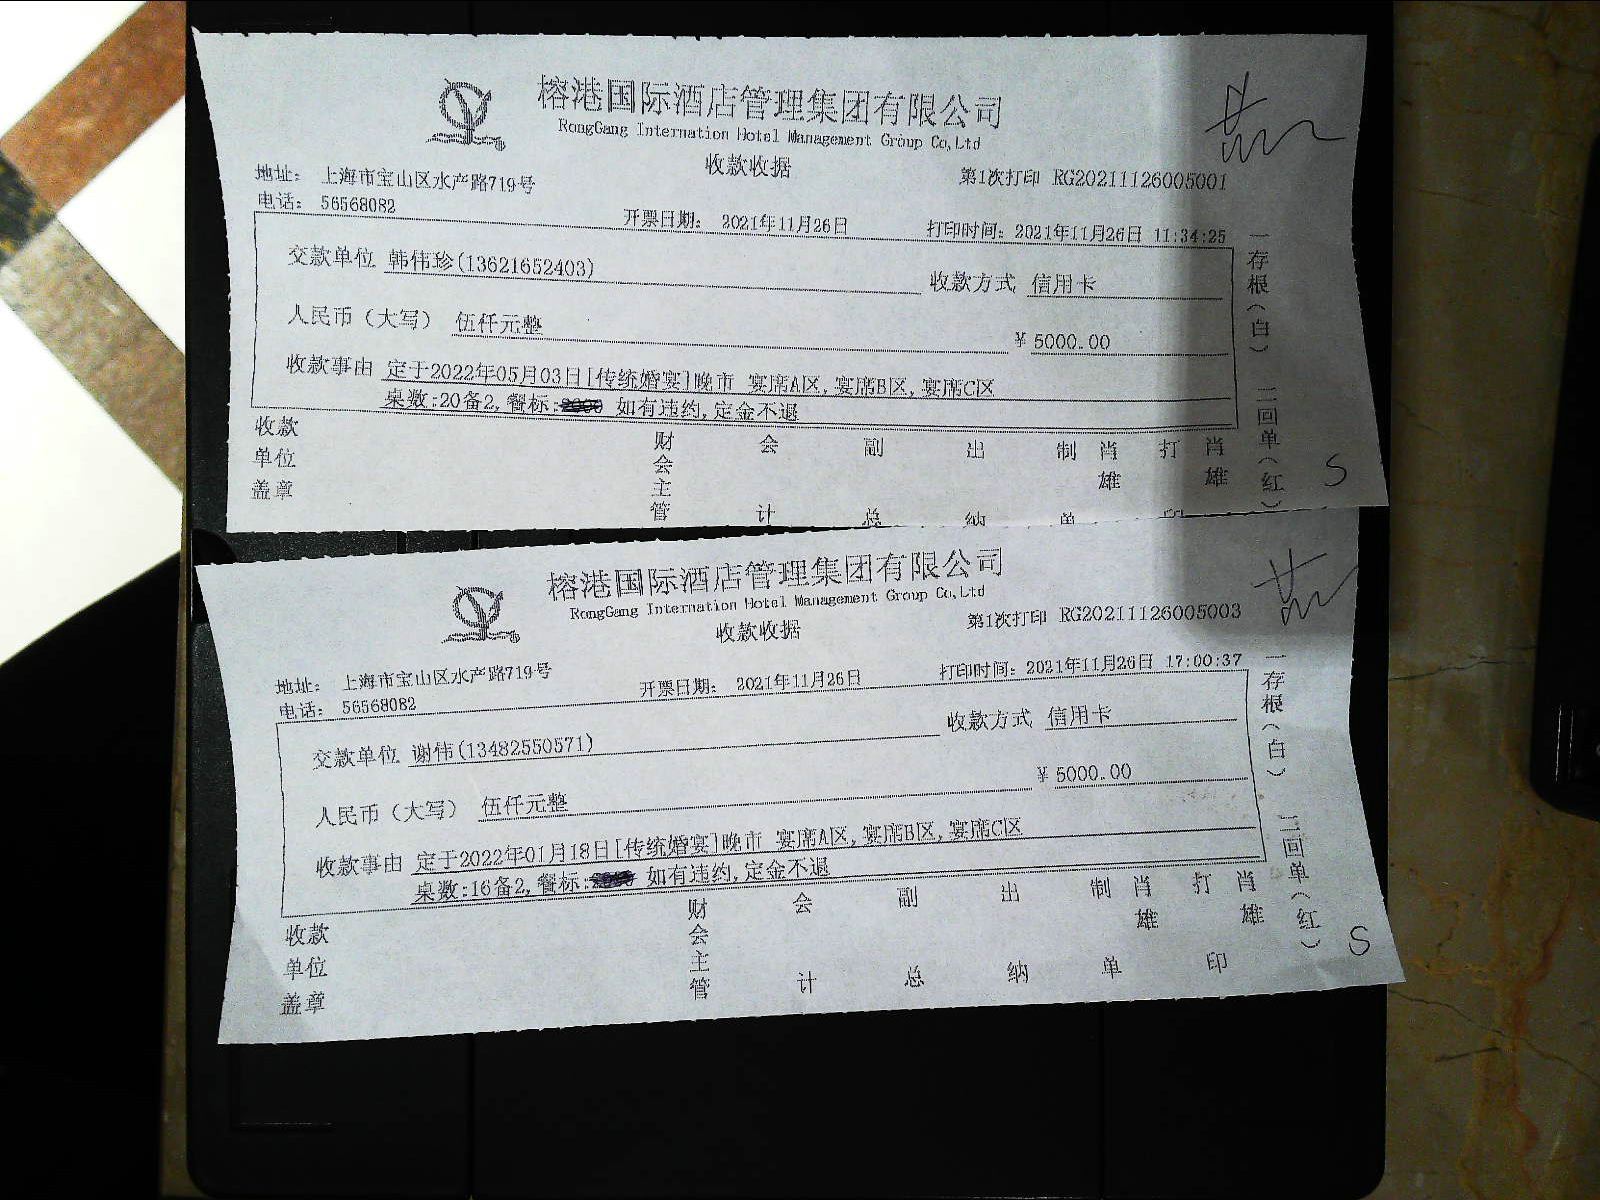 榕港国际酒店管理集团有限公司
RongGang Internation Hotel Management Group Co,Ltd
收款收据
第1次打印 RG20211126005001
地址： 上海市宝山区水产路719号
电话： 56568082
开票日期： 2021年11月26日
打印时间：2021年11月26日 11:34:25
交款单位 韩伟珍(13621652403)
收款方式 信用卡
人民币（大写） 伍仟元整
¥ 5000.00
收款事由 定于2022年05月03日[传统婚宴]晚市 宴席A区,宴席B区,宴席C区
桌数:20备2,餐标: 如有违约,定金不退
收款单位盖章
财会主管 会计 副总 出纳 制单 肖雄 打印 肖雄
一存根（白） 二回单（红）
S
榕港国际酒店管理集团有限公司
RongGang Internation Hotel Management Group Co,Ltd
收款收据
第1次打印 RG20211126005003
地址： 上海市宝山区水产路719号
电话： 56568082
开票日期： 2021年11月26日
打印时间：2021年11月26日 17:00:37
交款单位 谢伟(13482550571)
收款方式 信用卡
人民币（大写） 伍仟元整
¥ 5000.00
收款事由 定于2022年01月18日[传统婚宴]晚市 宴席A区,宴席B区,宴席C区
桌数:16备2,餐标: 如有违约,定金不退
收款单位盖章
财会主管 会计 副总 出纳 制单 肖雄 打印 肖雄
一存根（白） 二回单（红）
S